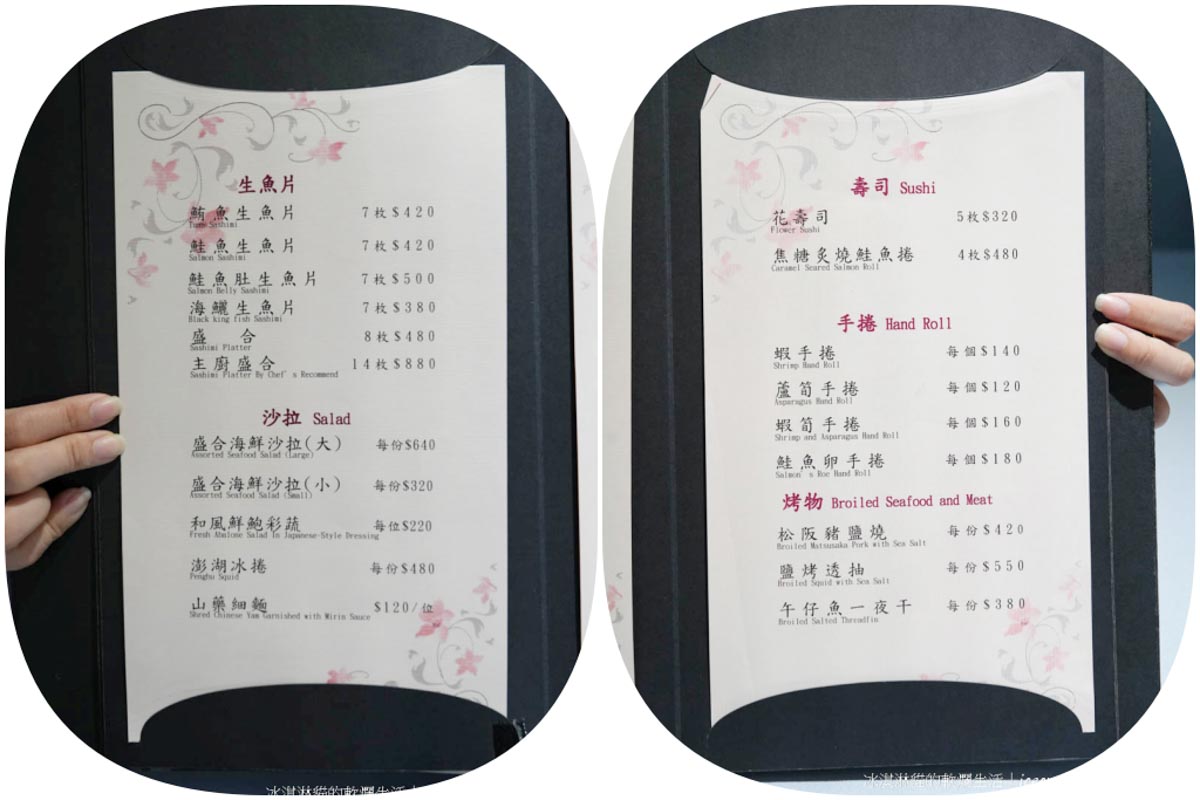 生魚片
鮪魚生魚片 7枚$420
Tuna Sashimi
鮭魚生魚片 7枚$420
Salmon Sashimi
鮭魚肚生魚片 7枚$500
Salmon Belly Sashimi
海鱺生魚片 7枚$380
Black king fish Sashimi
盛 合 8枚$480
Sashimi Platter
主廚盛合 14枚$880
Sashimi Platter By Chef's Recommend
沙拉 Salad
盛合海鮮沙拉(大) 每份$640
Assorted Seafood Salad (Large)
盛合海鮮沙拉(小) 每份$320
Assorted Seafood Salad (Small)
和風鮮鮑彩蔬 每位$220
Fresh Abalone Salad In Japanese-Style Dressing
澎湖冰捲 每份$480
Penghu Squid
山藥細麵 $120/位
Shred Chinese Yam Garnished with Mirin Sauce
壽司 Sushi
花壽司 5枚$320
Flower Sushi
焦糖炙燒鮭魚捲 4枚$480
Caramel Seared Salmon Roll
手捲 Hand Roll
蝦手捲 每個$140
Shrimp Hand Roll
蘆筍手捲 每個$120
Asparagus Hand Roll
蝦筍手捲 每個$160
Shrimp and Asparagus Hand Roll
鮭魚卵手捲 每個$180
Salmon's Roe Hand Roll
烤物 Broiled Seafood and Meat
松阪豬鹽燒 每份$420
Broiled Matsusaka Pork with Sea Salt
鹽烤透抽 每份$550
Broiled Squid with Sea Salt
午仔魚一夜干 每份$380
Broiled Salted Threadfin
冰淇淋貓的軟爛生活
冰淇淋貓的軟爛生活